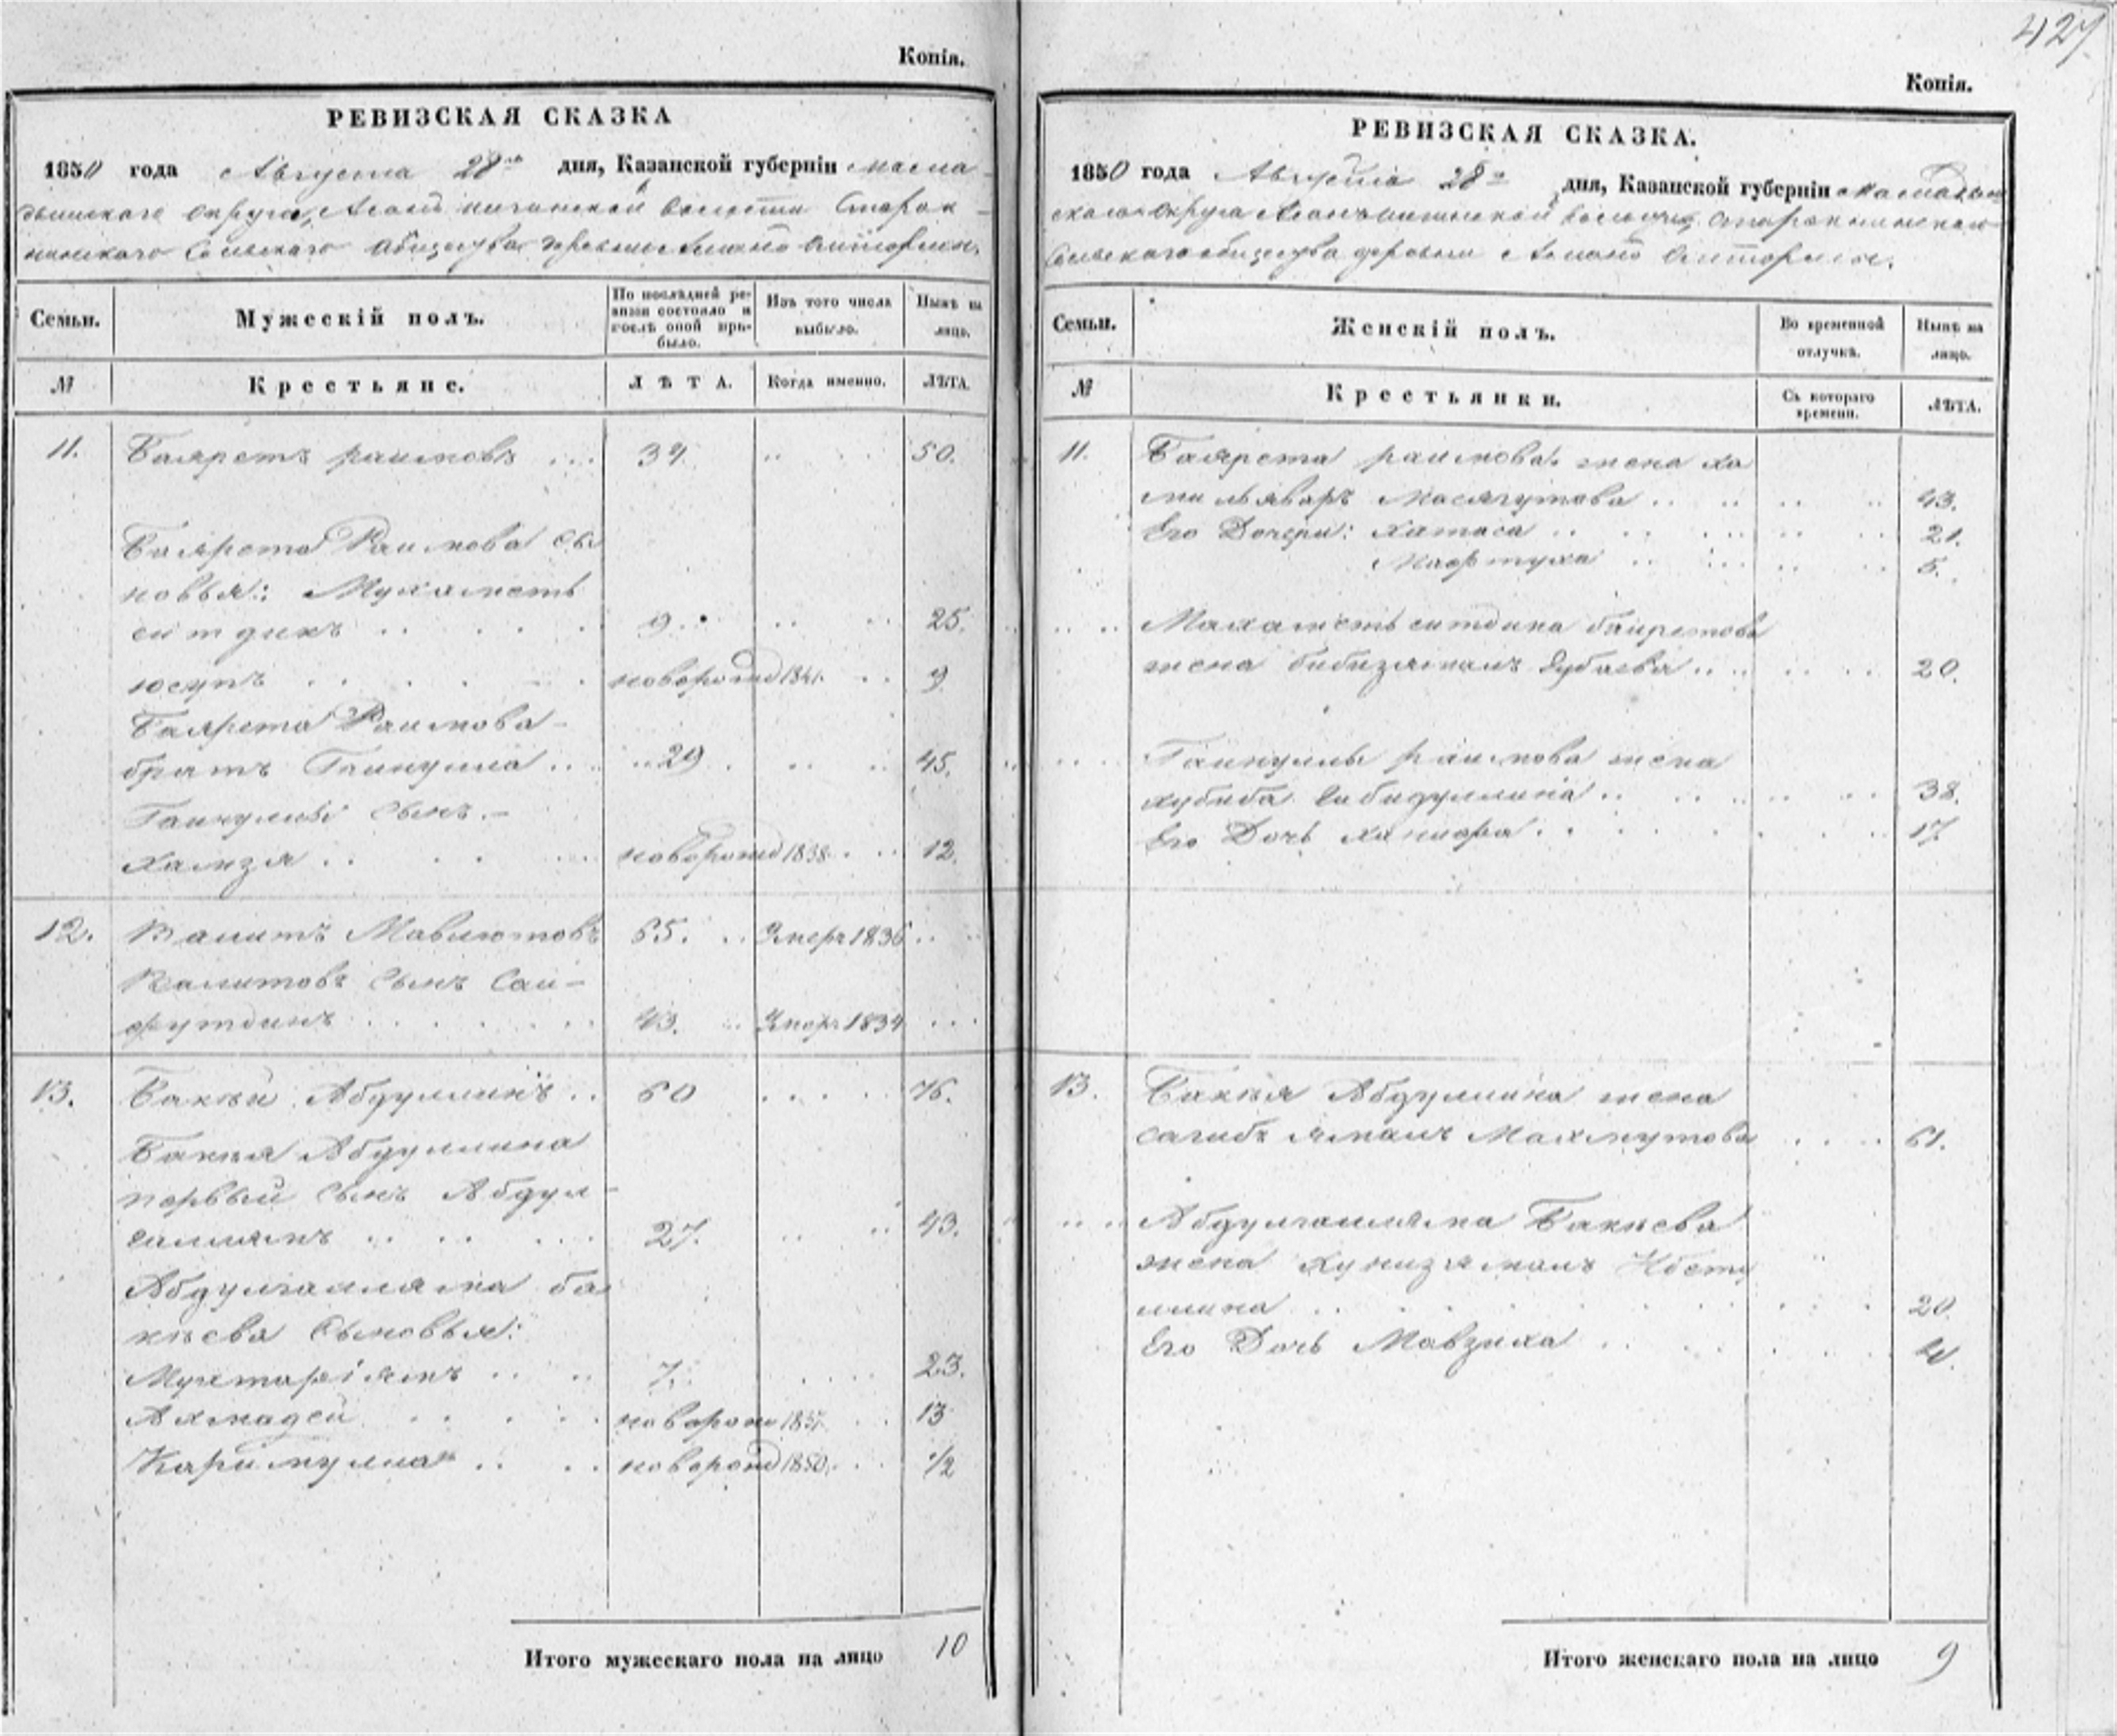 Копія.
РЕВИЗСКАЯ СКАЗКА
1850 года Августа 28го дня, Казанской губерніи Мама
дышскаго округа, волости
Сельскаго Общества деревни
Семьи. Мужескій полъ. По послѣдней ревизіи состояло и послѣ оной прибыло. Изъ того числа выбыло. Нынѣ на лицо.
№ Крестьяне. ЛѢТА. Когда именно. ЛѢТА.
11. Баяретъ раимовъ 34 50.
Баярета Раимова сы
новья: Мухаметь
ситдикъ 9. 25.
юсупъ новорожд 1841. 9
Баярета Раимова
братъ Гаинулла 29 45.
Гаинуллы сынъ.
Хамзя новорожд 1838 12.
12. Валитъ Мавлютовъ 65. Умеръ 1836
Валитовъ сынъ Сай-
футдинъ 43. Умеръ 1834
13. Бакѣй Абдуллинъ 60 76.
Бакѣя Абдуллина
первый сынъ Абдул-
саллямъ 27. 43.
Абдулгалляма ба
кѣева сыновья:
Мухтаріямъ 7. 23.
Ахмадей новорож 1837 13
Каримулла новорожд 1850. 1/2
Итого мужескаго пола на лицо 10
427
Копія.
РЕВИЗСКАЯ СКАЗКА.
1850 года Августа 28го дня, Казанской губерніи Мамадыш
скаго округа волости
Сельскаго общества деревни
Семьи. Женскій полъ. Во временной отлучкѣ. Нынѣ на лицо.
№ Крестьянки. Съ котораго времени. ЛѢТА.
11. Баярета раимова жена ха
Масягутова 43.
Его Дочери: Хатаса 21.
Мафтуха 5.
Махаметь ситдика баиретова
жена бибизямалъ 20.
Гаинуллы раимова жена
хубиба 38.
Его Дочь 17.
13. Бакѣя Абдуллина жена
сагибъ ямалъ Махмутова 61.
Абдулгалляма Бакѣева
жена хунизямалъ
ллина 20.
Его Дочь Мавзиха 4.
Итого женскаго пола на лицо 9